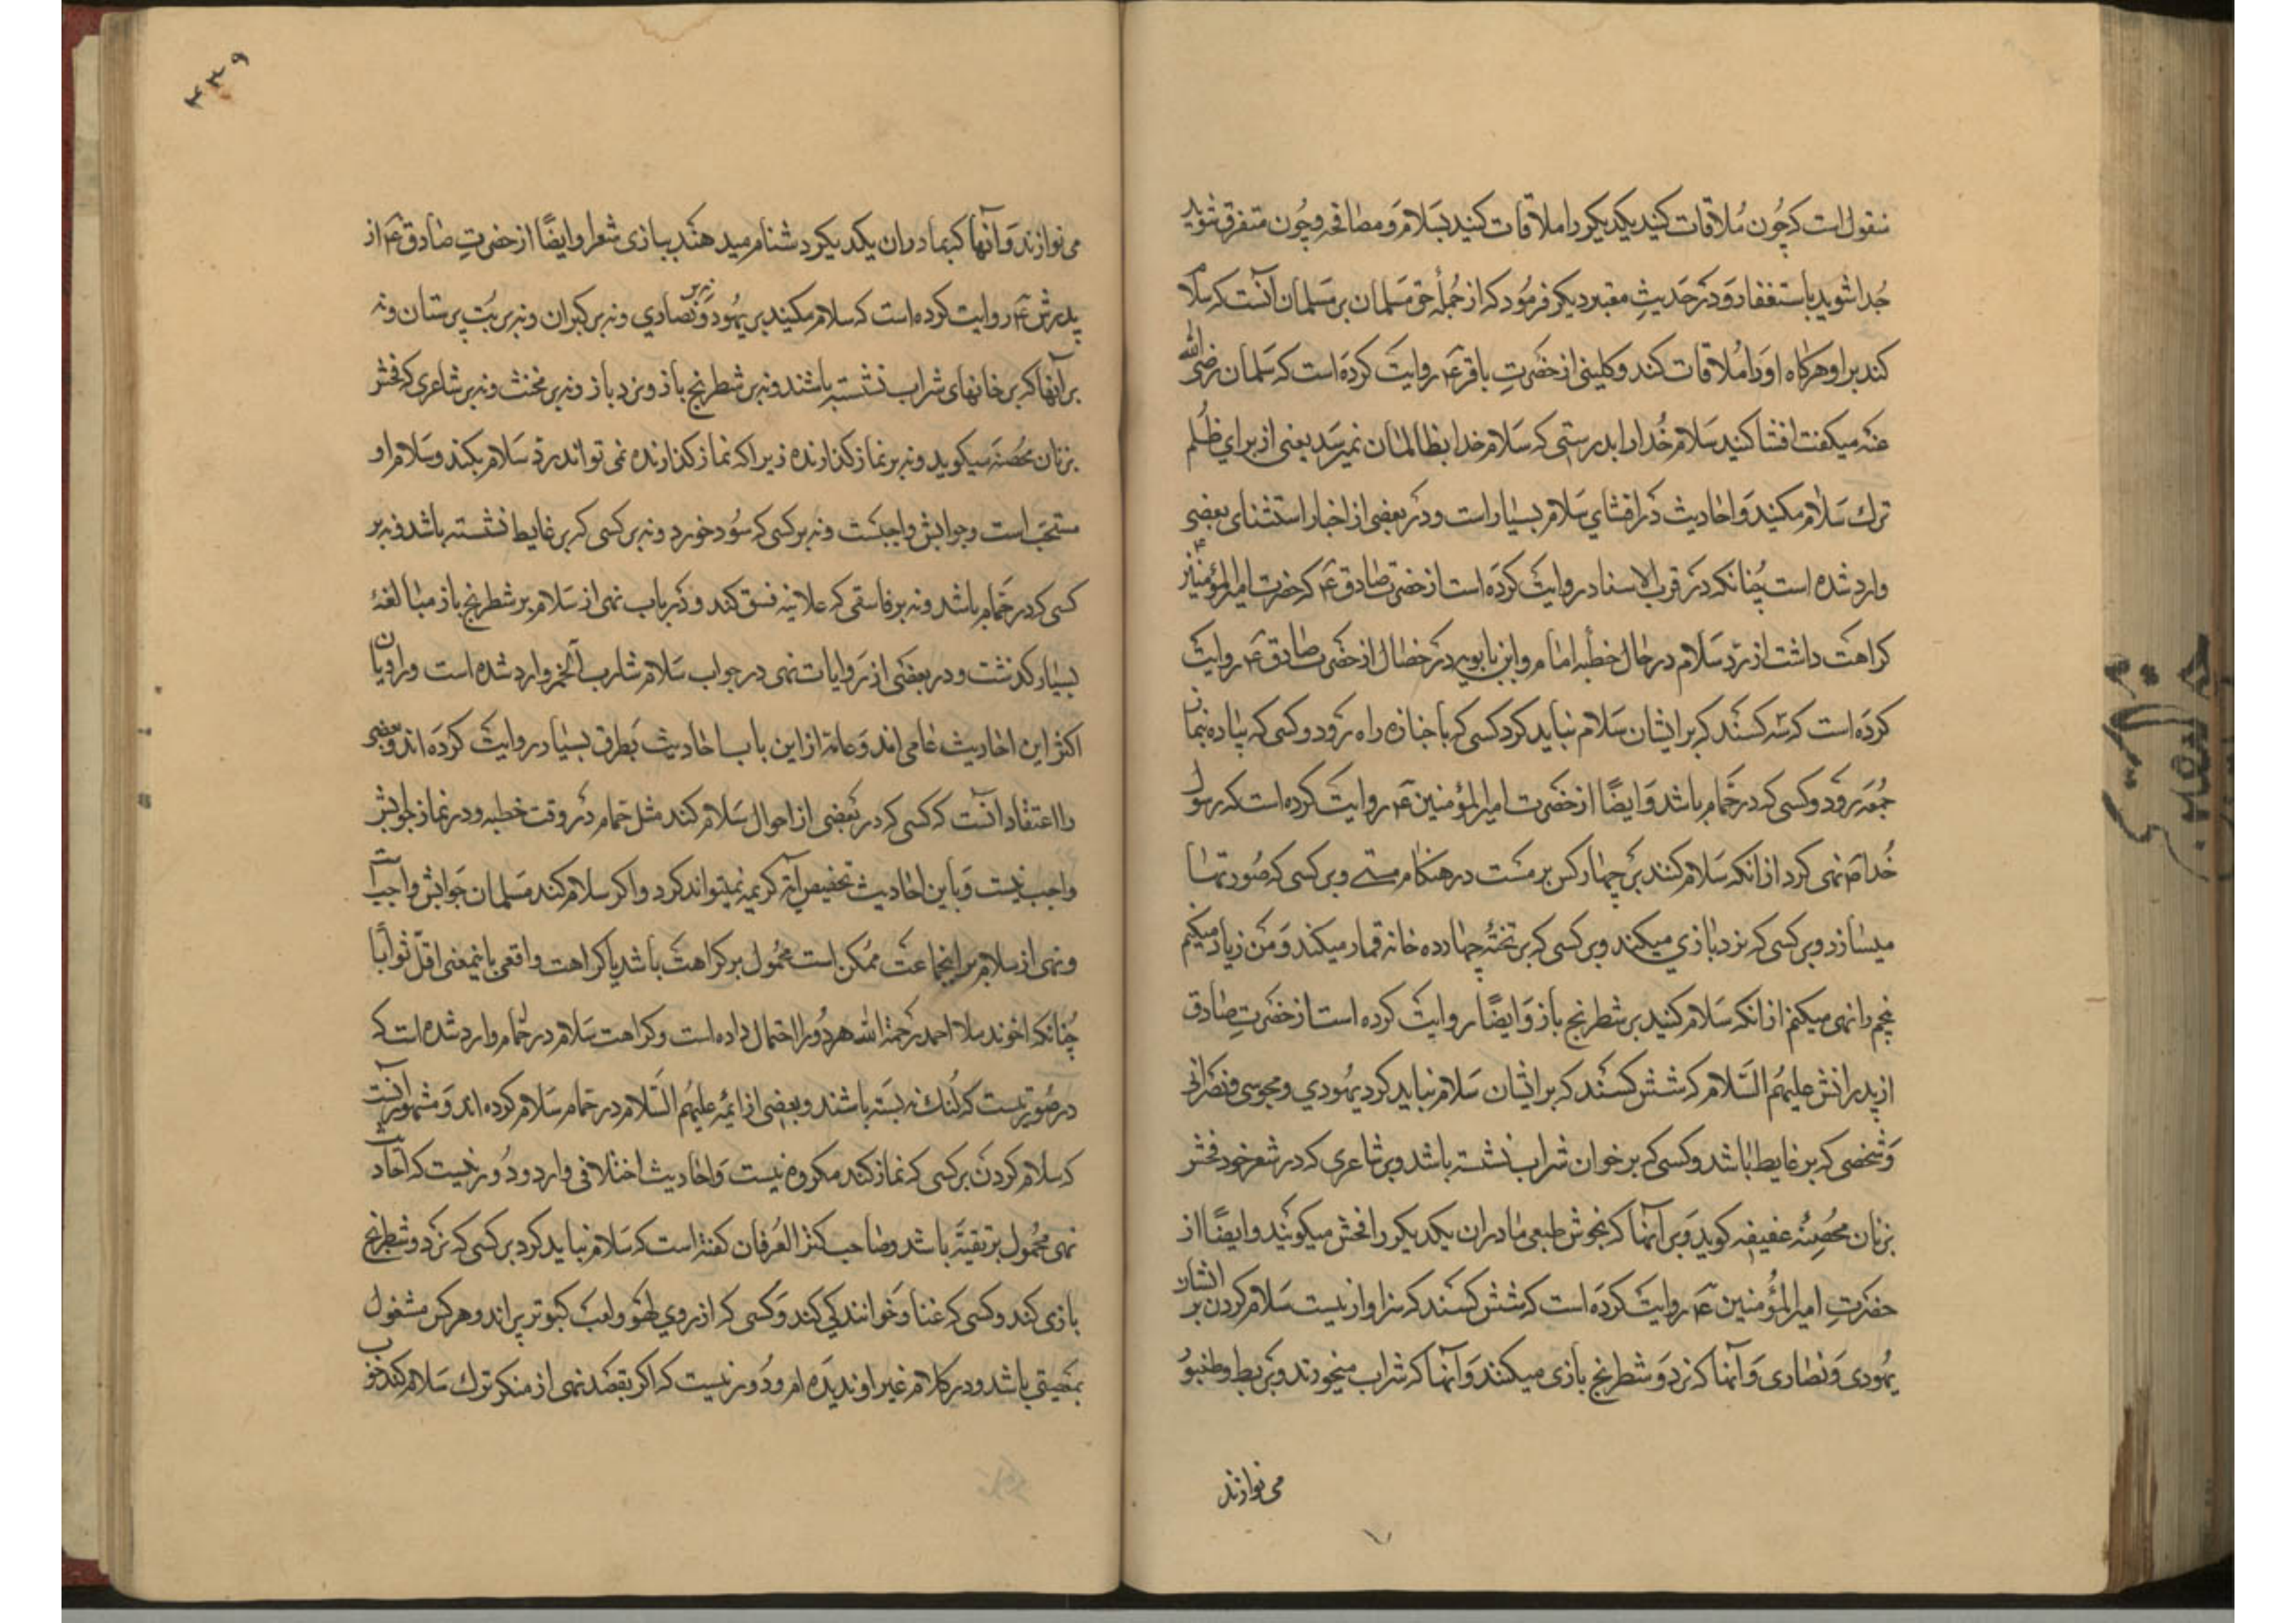 منقول است که چون ملاقات کنید یکدیکر را ملاقات کنید بسلام و مصافحه و چون متفرق شوید
جدا شوید باستغفار و در حدیث معتبر دیکر فرمود که از جملهٔ حق مسلمان بر مسلمان آنست که سلام
کند بر او هرکاه او را ملاقات کند و کلینی از حضرت باقر ع روایت کرده است که سلمان رضی الله
عنه میکفت افشا کنید سلام خدا را بدرستی که سلام خدا بظالمان نمیرسد یعنی از برای ظلم
ترک سلام مکنید و احادیث در افشای سلام بسیار است و در بعضی از اخبار استثنای بعضی
وارد شده است چنانکه در قرب الاسناد روایت کرده است از حضرت صادق ع که حضرت امیر المؤمنین ع
کراهت داشت از رد سلام در حال خطبه امام و ابن بابویه در خصال از حضرت صادق ع روایت
کرده است که سه کسند که بر ایشان سلام نباید کرد کسی که با جنازه راه رود و کسی که پیاده بنماز
جمعه رود و کسی که در حمام باشد و ایضا از حضرت امیر المؤمنین ع روایت کرده است که رسول
خدا ص نهی کرد از انکه سلام کنند بر چهار کس بر مست در هنکام مستی و بر کسی که صورتها
میسازد و بر کسی که نرد بازی میکند و بر کسی که بر تختهٔ چهارده خانه قمار میکند و من زیاد میکنم
پنجم را نهی میکنم از انکه سلام کنید بر شطرنج باز و ایضا روایت کرده است از حضرت صادق
از پدرانش علیهم السلام که شش کسند که بر ایشان سلام نباید کرد یهودی و مجوسی و نصرانی
و شخصی که بر غایط باشد و کسی که بر خوان شراب نشسته باشد و بر شاعری که در شعر خود فحش
بزنان محصنهٔ عفیفه کوید و بر آنها که بخوش طبعی مادران یکدیکر را فحش میکویند و ایضا از
حضرت امیر المؤمنین ع روایت کرده است که شش کسند که سزاوار نیست سلام کردن بر ایشان
یهودی و نصاری و آنها که نرد و شطرنج بازی میکنند و آنها که شراب میخورند و بربط و طنبور
می نوازند
۴۳۹
می نوازند و آنها که بمادران یکدیکر دشنام میدهند ببازی شعرا و ایضا از حضرت صادق ع از
پدرش ع روایت کرده است که سلام مکنید بر یهود و نه بر نصاری و نه بر کبران و نه بر بت پرستان و نه
بر آنها که بر خانهای شراب نشسته باشند و نه بر شطرنج باز و نرد باز و نه بر مخنث و نه بر شاعری که فحش
بزنان محصنه میکوید و نه بر نماز کذارنده زیرا که نماز کذارنده نمی تواند رد سلام بکند و سلام او
مستحب است و جوابش واجبست و نه بر کسی که سود خورد و نه بر کسی که بر غایط نشسته باشد و نه بر
کسی که در حمام باشد و نه بر فاسقی که علانیه فسق کند و در باب نهی از سلام بر شطرنج باز مبالغهٔ
بسیار کذشت و در بعضی از روایات نهی در جواب سلام شارب الخمر وارد شده است و راویان
اکثر این احادیث عامی اند و عامه از این باب احادیث بطرق بسیار روایت کرده اند و بعضی
را اعتقاد آنست که کسی که در بعضی از احوال سلام کند مثل حمام در وقت خطبه و در نماز جوابش
واجب نیست و باین احادیث تخصیص آیهٔ کریمه نمیتواند کرد و اکر سلام کند مسلمان جوابش واجب است
و نهی از سلام بر اینجماعت ممکن است محمول بر کراهت باشد یا کراهت واقعی یا بمعنی اقل ثوابا
چنانکه اخوند ملا احمد رحمة الله هر دو را احتمال داده است و کراهت سلام در حمام وارد شده است که
در صورتیست که لنک نه بسته باشند و بعضی از ائمه علیهم السلام در حمام سلام کرده اند و مشهور آنست
که سلام کردن بر کسی که نماز کند مکروه نیست و احادیث اختلافی وارد و دور نیست که احادیث
نهی محمول بر تقیه باشد و صاحب کنز العرفان کفته است که سلام نباید کرد بر کسی که نرد و شطرنج
بازی کند و کسی که غنا و خوانندکی کند و کسی که از روی لهو و لعب کبوتر پراند و هر کس مشغول
بمعصیتی باشد و در کلام غیر او ندیده ام و دور نیست که اکر بقصد نهی از منکر ترک سلام کند خوب